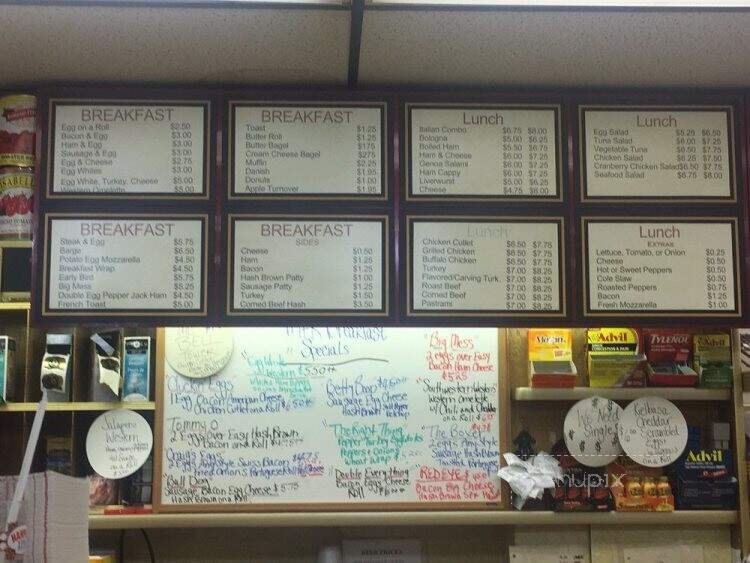 BREAKFAST
Egg on a Roll $2.50
Bacon & Egg $3.00
Ham & Egg $3.00
Sausage & Egg $3.00
Egg & Cheese $2.75
Egg Whites $3.00
Egg White, Turkey, Cheese $5.00
Western Omelette $5.00
BREAKFAST
Toast $1.25
Butter Roll $1.25
Butter Bagel $175
Cream Cheese Bagel $275
Muffin $2.25
Danish $1.95
Donuts $1.00
Apple Turnover $1.95
Lunch
Italian Combo $6.75 $8.00
Bologna $5.00 $6.25
Boiled Ham $5.50 $6.75
Ham & Cheese $6.00 $7.25
Genoa Salami $6.00 $7.25
Ham Cappy $6.00 $7.25
Liverwurst $5.00 $6.25
Cheese $4.75 $6.00
Lunch
Egg Salad $5.25 $6.50
Tuna Salad $6.00 $7.25
Vegetable Tuna $6.50 $7.75
Chicken Salad $6.25 $7.50
Cranberry Chicken Salad $6.50 $7.75
Seafood Salad $6.75 $8.00
BREAKFAST
Steak & Egg $5.75
Barge $6.50
Potato Egg Mozzarella $4.50
Breakfast Wrap $4.50
Early Bird $5.75
Big Mess $5.25
Double Egg Pepper Jack Ham $4.50
French Toast $5.00
BREAKFAST
SIDES
Cheese $0.50
Ham $1.25
Bacon $1.25
Hash Brown Patty $1.00
Sausage Patty $1.25
Turkey $1.50
Corned Beef Hash $3.50
Lunch
Chicken Cutlet $6.50 $7.75
Grilled Chicken $6.50 $7.75
Buffalo Chicken $6.50 $7.75
Turkey $7.00 $8.25
Flavored/Carving Turk. $7.00 $8.25
Roast Beef $7.00 $8.25
Corned Beef $7.00 $8.25
Pastrami $7.00 $8.25
Lunch
EXTRAS
Lettuce, Tomato, or Onion $0.25
Cheese $0.50
Hot or Sweet Peppers $0.50
Cole Slaw $0.50
Roasted Peppers $0.75
Bacon $1.25
Fresh Mozzarella $1.00
Breakfast
Specials
Chicken Eggs
1 Egg Bacon American Cheese
Chicken Cutlet on a Roll $6.50
Tommy O
2 Eggs over Easy Hash Brown
Bacon and Roll
Craig Eggs
2 Eggs Any Style Swiss Bacon
Fried Onions Portuguese
"Bull Dog"
Sausage Bacon Egg Cheese $5.75
Hash Brown on a Roll
Western $5.50
Betty Boop
Sausage Egg Cheese
Hash Brown
"The Right Thing
Pepper Turkey Egg Whites
Peppers & Onions
Wheat Wrap
Double Everything
Bacon Eggs Cheese
Roll
"Big Mess
2 eggs over Easy
Bacon Ham Cheese
$5.25
"Southwestern Western
Western Omelette
w/ Chili and Cheddar
"The Boss
2 Eggs Any Style
Sausage Hash Brown
Toasted Portuguese
RED EYE
Bacon Egg Cheese
Hash Brown
Jalapeno
Western
on a Roll
We Need
Singles
Kielbasa
Cheddar
Scrambled
Eggs
on a Roll
Motrin
Advil
TYLENOL
Advil
mupix